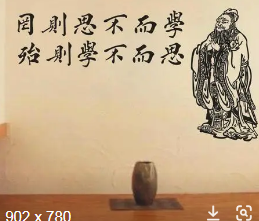 學而不思則罔
思而不學則殆
902 x 780